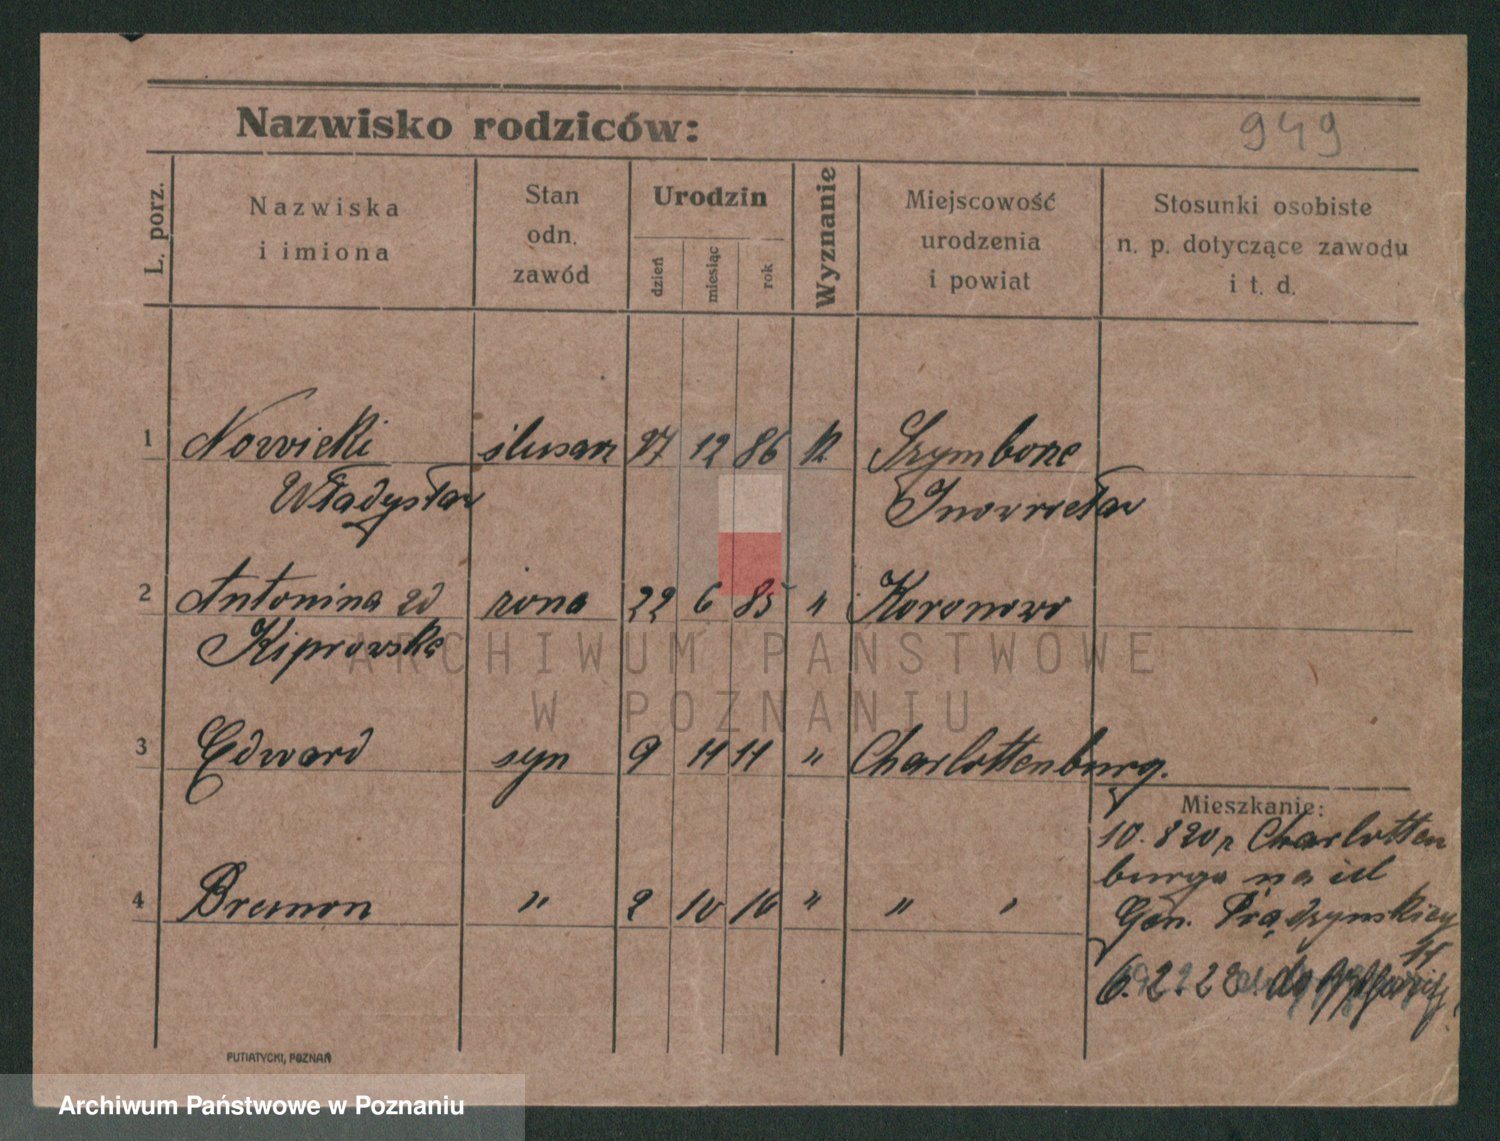 Nazwisko rodziców:
949
L. porz.
Nazwiska
i imiona
Stan
odn.
zawód
Urodzin
dzień
miesiąc
rok
Wyznanie
Miejscowość
urodzenia
i powiat
Stosunki osobiste
n. p. dotyczące zawodu
i t. d.
1 Nowicki ślusarz 27 12 86 Szymborze
Władysław Inowrocław
2 Antonina zd żona 22 6 85 " Koronowo
Kiprowska
3 Edward syn 9 11 11 " Charlottenburg.
Mieszkanie:
10. 8 20 Charlotten
burga na ul
4 " 2 10 16 " " "
Gen. Prądzyńskiey
11
6. 2 22 do
PUTIATYCKI, POZNAŃ
ARCHIWUM PAŃSTWOWE
W POZNANIU
Archiwum Państwowe w Poznaniu